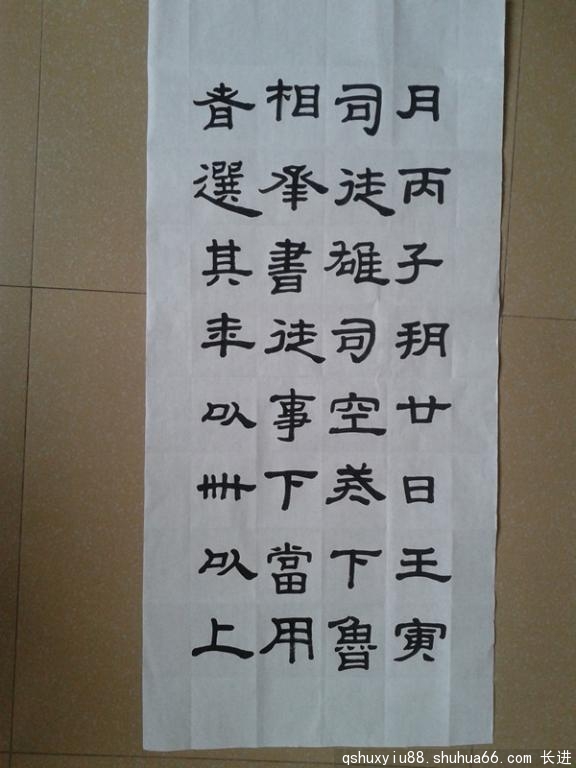 月丙子朔廿日王寅
司徒雄司空戒下魯
相承書徒事下當用
者選其年以卌以上
qshuxyiu88.shuhua66.com 长进